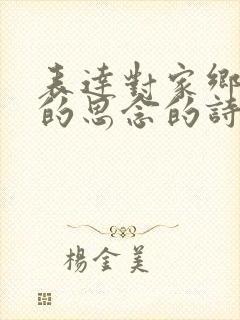 表達對家鄉
的思念的詩
楊金美